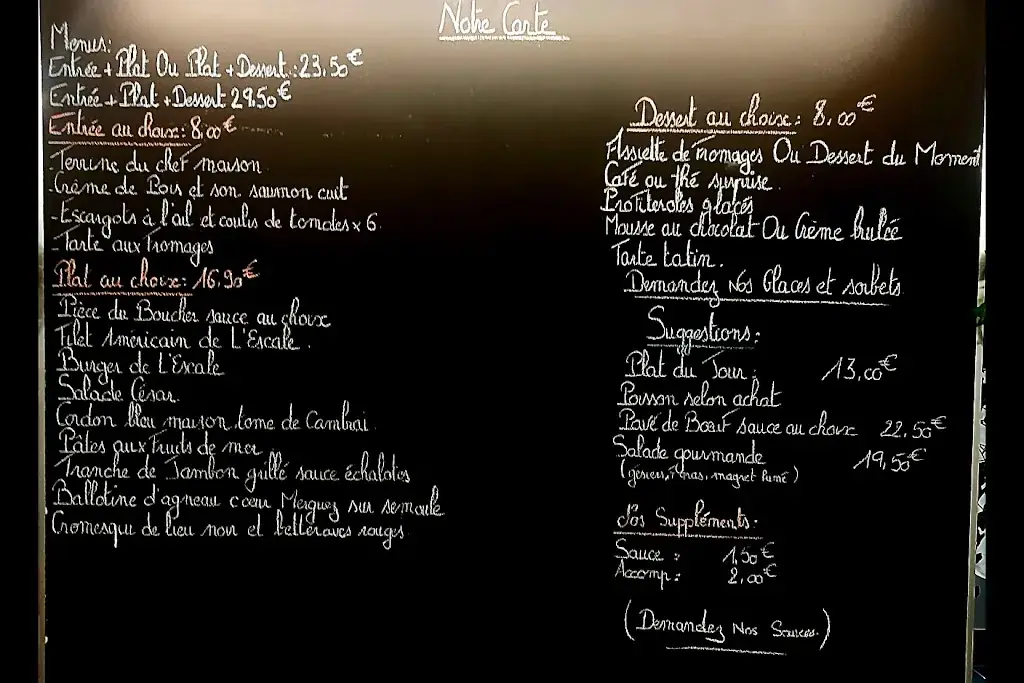 Notre Carte
Menus:
Entrée + Plat Ou Plat + Dessert : 23,50€
Entrée + Plat + Dessert 29.50€
Entrée au choix: 8,00€
- Terrine du chef maison
- Crème de Pois et son saumon cuit
- Escargots à l'ail et coulis de tomates x 6.
- Tarte aux fromages
Plat au choix: 16,90€
Pièce du Boucher sauce au choix
Filet Américain de L'Escale.
Burger de L'Escale
Salade César.
Cordon bleu maison, tome de Cambrai.
Pâtes aux fruits de mer
Tranche de Jambon grillé sauce échalotes
Ballotine d'agneau cœur Merguez sur semoule
Cromesqui de lieu noir et betteraves rouges.
Dessert au choix: 8,00€
Assiette de fromages Ou Dessert du Moment
Café ou thé surprise.
Profiteroles glacés
Mousse au chocolat Ou Crème brulée
Tarte tatin.
Demandez Nos Glaces et sorbets
Suggestions:
Plat du Jour: 13,00€
Poisson selon achat
Pavé de Bœuf sauce au choix 22,50€
Salade gourmande 19,50€
(gésiers, F. Gras, magret Fumé)
Nos Suppléments:
Sauce : 1,50€
Accomp : 2,00€
(Demandez Nos Sauces.)